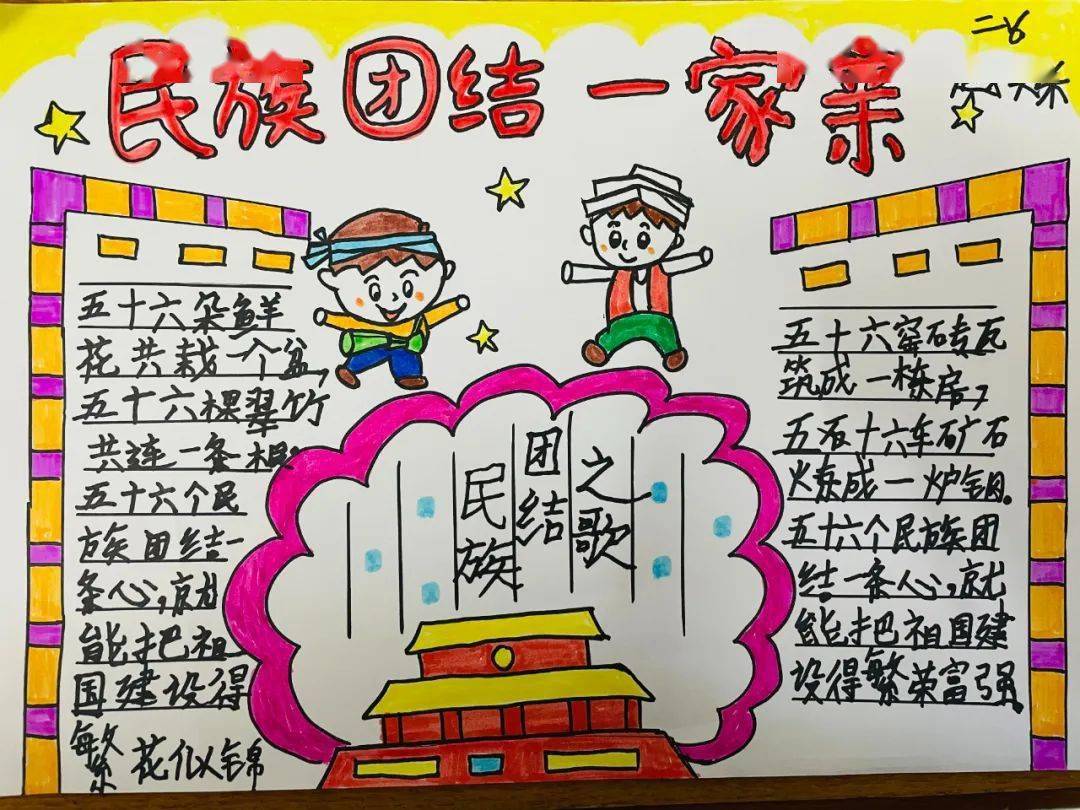 二6
民族团结一家亲
五十六朵鲜
花共栽一个盆,
五十六棵翠竹
共连一条根
五十六个民
族团结一
条心,就
能把祖
国建设得
繁花似锦
民族
团结
之歌
五十六窑砖瓦
筑成一栋房,
五石十六车矿石
炼成一炉钢。
五十六个民族团
结一条心,就
能把祖国建
设得繁荣富强